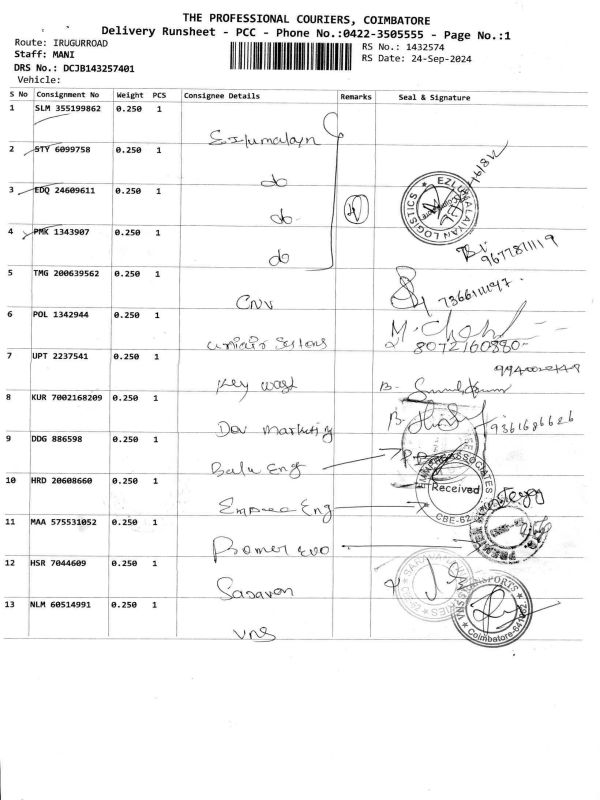 THE PROFESSIONAL COURIERS, COIMBATORE
Delivery Runsheet - PCC - Phone No.:0422-3505555 - Page No.:1
Route: IRUGURROAD
RS No.: 1432574
Staff: MANI
RS Date: 24-Sep-2024
DRS No.: DCJB143257401
Vehicle:
S No Consignment No Weight PCS Consignee Details Remarks Seal & Signature
1 SLM 355199862 0.250 1
2 STY 6099758 0.250 1 do
3 EDQ 24609611 0.250 1 do
EZLUMALAIYAN LOGISTICS
4 PMK 1343907 0.250 1 do
9677871119
5 TMG 200639562 0.250 1 CNV
6 POL 1342944 0.250 1
8072160880
7 UPT 2237541 0.250 1 Key West
8 KUR 7002168209 0.250 1 Dev Marketing
9361686626
9 DDG 886598 0.250 1 Balu Eng
10 HRD 20608660 0.250 1 Eng
ASSOCIATES
Received
CBE-62
11 MAA 575531052 0.250 1 Evo
12 HSR 7044609 0.250 1 Saravan
13 NLM 60514991 0.250 1 VNS
VNS TRANSPORTS
Coimbatore-641062